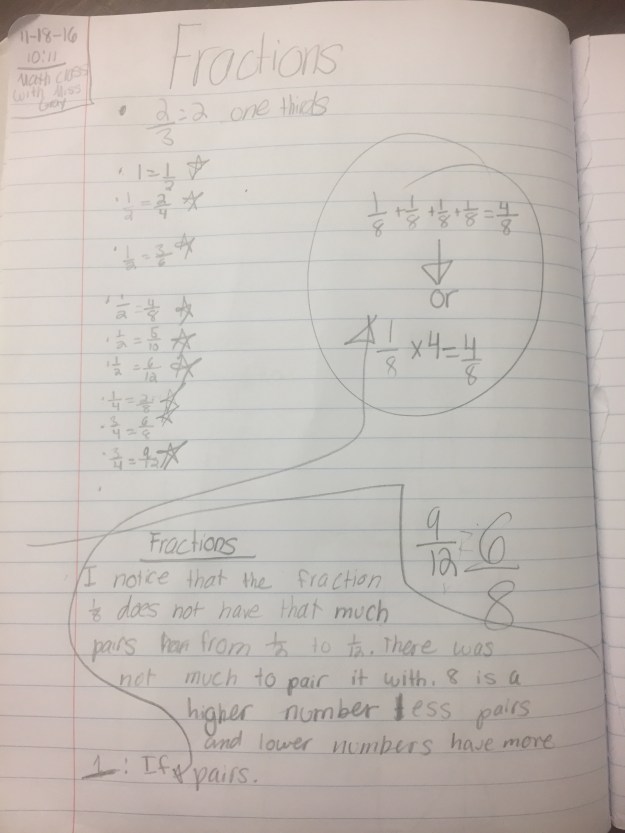 11-18-16
10:11
Math class
with Miss
Fractions
2/3 = 2 one thirds
1 = 1/2
1/2 = 2/4
1/2 = 3/6
1/2 = 4/8
1/2 = 5/10
1/2 = 6/12
1/4 = 2/8
3/4 = 6/8
3/4 = 9/12
1/8 + 1/8 + 1/8 + 1/8 = 4/8
or
1/8 x 4 = 4/8
9/12 = 6/8
Fractions
I notice that the fraction
1/8 does not have that much
pairs than from 1/2 to 1/12. There was
not much to pair it with. 8 is a
higher number less pairs
and lower numbers have more
pairs.
1: If